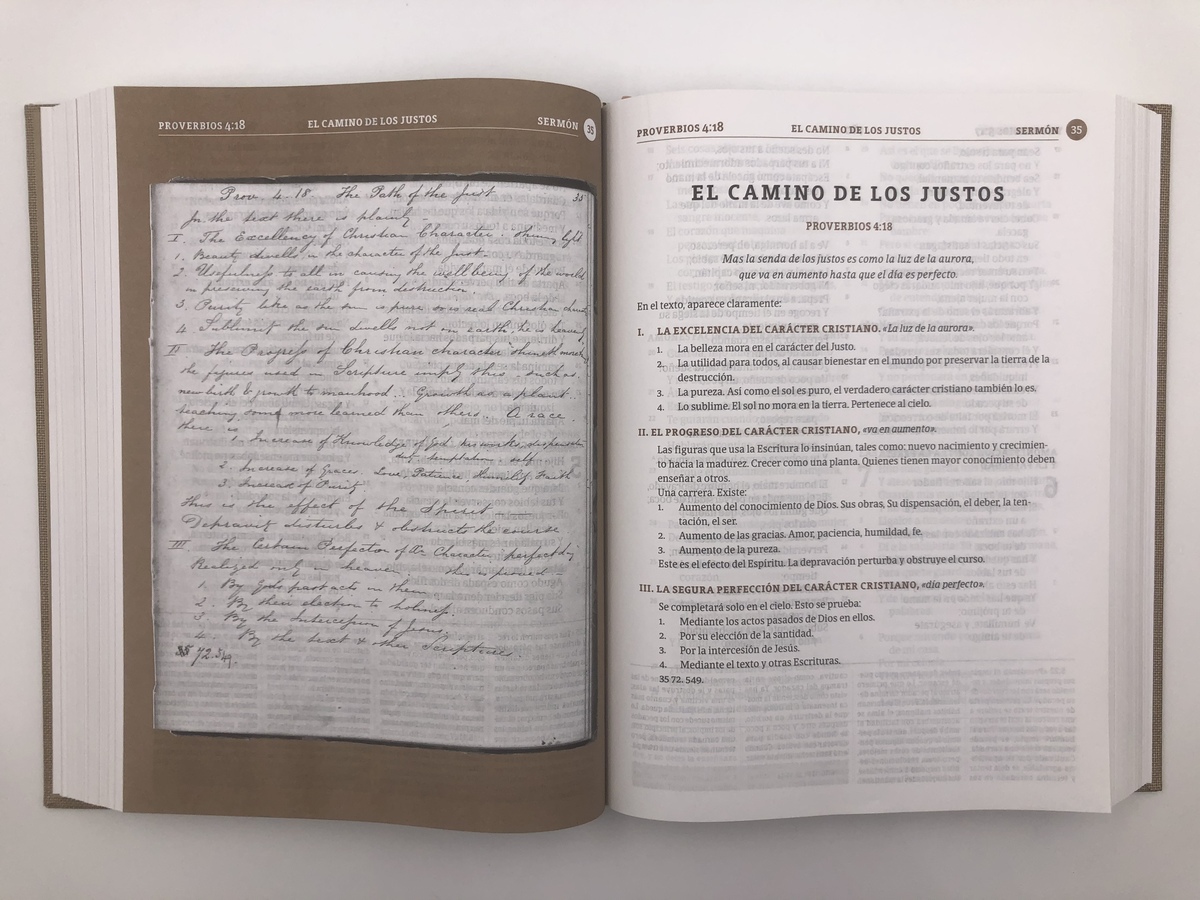 PROVERBIOS 4:18 EL CAMINO DE LOS JUSTOS SERMÓN 35
Prov. 4. 18. The Path of the Just 35
In the text there is plainly -
I. The Excellency of Christian Character. Shining light
1. Beauty dwells in the character of the Just.
2. Usefulness to all in causing the well being of the world
in preserving the earth from destruction.
3. Purity like as the sun is pure so is real Christian
4. Sublimity the sun dwells not on earth, he is heavenly
II The Progress of Christian character shineth more
the figures used in Scripture imply this such as
new birth & growth to manhood. Growth as a plant
teaching some more learned than others. A race.
there is
1. Increase of Knowledge of God his works, dispensation
duty temptation self
2. Increase of Graces. Love, Patience, Humility, Faith
3. Increase of Purity
This is the effect of the Spirit
Depravity disturbs & obstructs the course
III The Certain Perfection of Character perfect day
Realized only in heaven this is proved -
1. By Gods past acts in them
2. By their election to holiness.
3. By the Intercession of Jesus.
4. By the text & other Scriptures.
35 72. 549.
PROVERBIOS 4:18 EL CAMINO DE LOS JUSTOS SERMÓN 35
EL CAMINO DE LOS JUSTOS
PROVERBIOS 4:18
Mas la senda de los justos es como la luz de la aurora,
que va en aumento hasta que el día es perfecto.
En el texto, aparece claramente:
I. LA EXCELENCIA DEL CARÁCTER CRISTIANO. «La luz de la aurora».
1. La belleza mora en el carácter del Justo.
2. La utilidad para todos, al causar bienestar en el mundo por preservar la tierra de la
destrucción.
3. La pureza. Así como el sol es puro, el verdadero carácter cristiano también lo es.
4. Lo sublime. El sol no mora en la tierra. Pertenece al cielo.
II. EL PROGRESO DEL CARÁCTER CRISTIANO, «va en aumento».
Las figuras que usa la Escritura lo insinúan, tales como: nuevo nacimiento y crecimien-
to hacia la madurez. Crecer como una planta. Quienes tienen mayor conocimiento deben
enseñar a otros.
Una carrera. Existe:
1. Aumento del conocimiento de Dios. Sus obras, Su dispensación, el deber, la ten-
tación, el ser.
2. Aumento de las gracias. Amor, paciencia, humildad, fe.
3. Aumento de la pureza.
Este es el efecto del Espíritu. La depravación perturba y obstruye el curso.
III. LA SEGURA PERFECCIÓN DEL CARÁCTER CRISTIANO, «día perfecto».
Se completará solo en el cielo. Esto se prueba:
1. Mediante los actos pasados de Dios en ellos.
2. Por su elección de la santidad.
3. Por la intercesión de Jesús.
4. Mediante el texto y otras Escrituras.
35 72. 549.